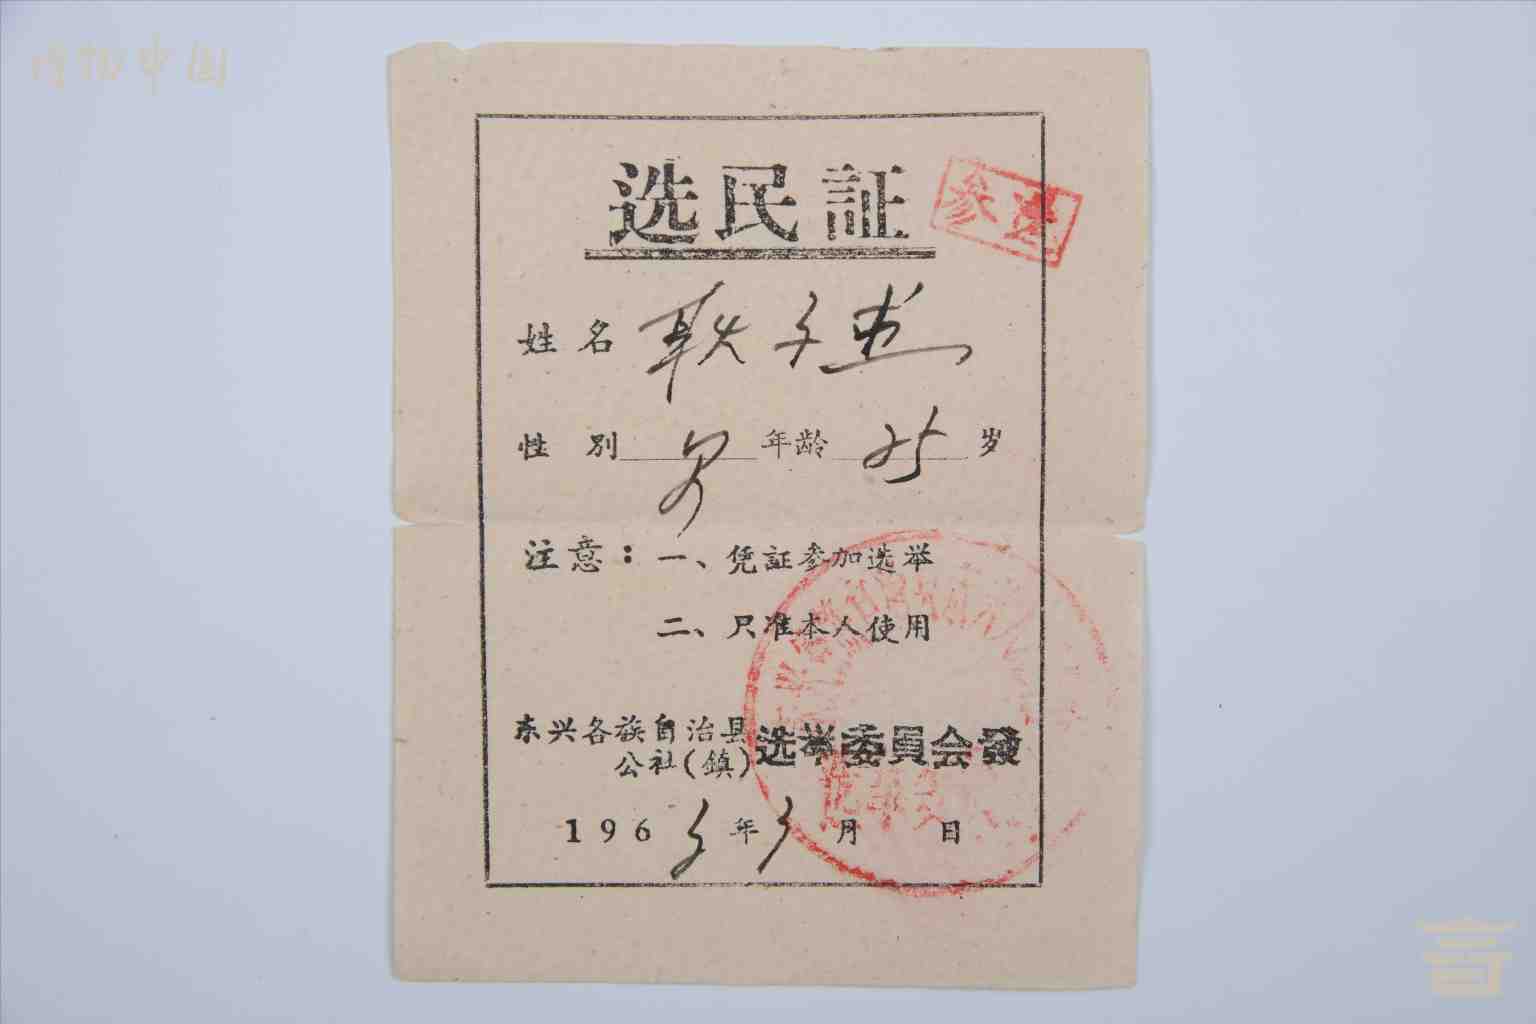 博物中国
选民証
参选
姓名 耿子建
性别 男 年龄 25 岁
注意：一、凭証参加选举
二、只准本人使用
东兴各族自治县
公社(鎮)选举委員会發
1963年3月 日